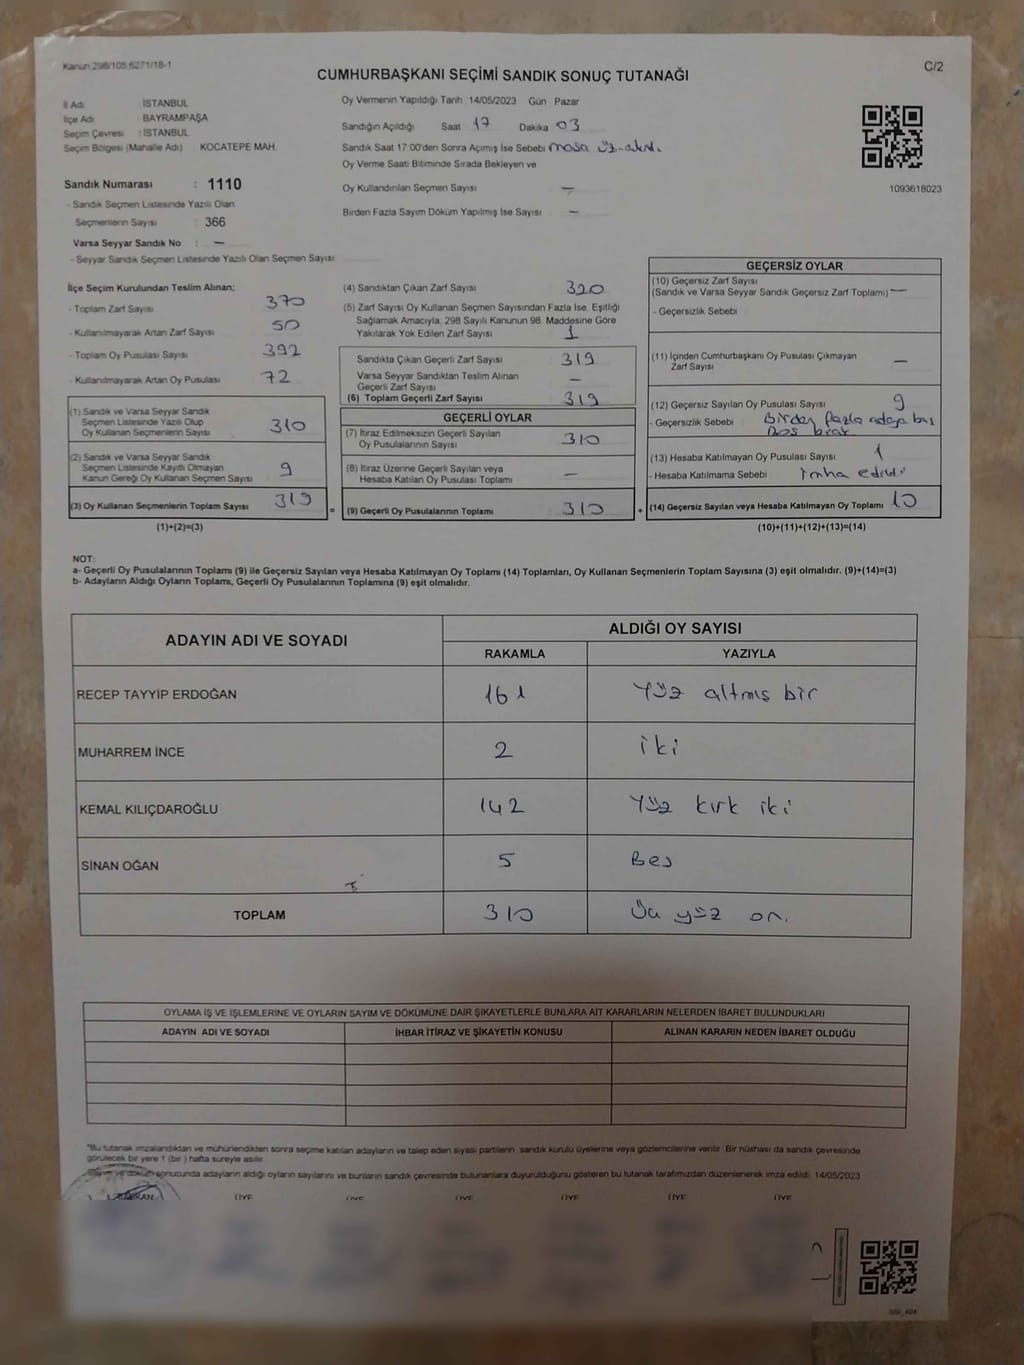 Kanun 298/105 6271/18-1
C/2
CUMHURBAŞKANI SEÇİMİ SANDIK SONUÇ TUTANAĞI
İl Adı İSTANBUL
İlçe Adı BAYRAMPAŞA
Seçim Çevresi : İSTANBUL
Seçim Bölgesi (Mahalle Adı) KOCATEPE MAH.
Sandık Numarası : 1110
- Sandık Seçmen Listesinde Yazılı Olan
Seçmenlerin Sayısı 366
Varsa Seyyar Sandık No : —
- Seyyar Sandık Seçmen Listesinde Yazılı Olan Seçmen Sayısı
Oy Vermenin Yapıldığı Tarih 14/05/2023 Gün Pazar
Sandığın Açıldığı Saat 17 Dakika 03
Sandık Saat 17:00'den Sonra Açımış İse Sebebi masa
Oy Verme Saati Bitiminde Sırada Bekleyen ve
Oy Kullandırılan Seçmen Sayısı —
Birden Fazla Sayım Döküm Yapılmış İse Sayısı —
1093618023
İlçe Seçim Kurulundan Teslim Alınan;
- Toplam Zarf Sayısı 370
- Kullanılmayarak Artan Zarf Sayısı 50
- Toplam Oy Pusulası Sayısı 392
- Kullanılmayarak Artan Oy Pusulası 72
(1) Sandık ve Varsa Seyyar Sandık
Seçmen Listesinde Yazılı Olup
Oy Kullanan Seçmenlerin Sayısı 310
(2) Sandık ve Varsa Seyyar Sandık
Seçmen Listesinde Kayıtlı Olmayan
Kanun Gereği Oy Kullanan Seçmen Sayısı 9
(3) Oy Kullanan Seçmenlerin Toplam Sayısı 319
(1)+(2)=(3)
(4) Sandıktan Çıkan Zarf Sayısı 320
(5) Zarf Sayısı Oy Kullanan Seçmen Sayısından Fazla İse, Eşitliği
Sağlamak Amacıyla, 298 Sayılı Kanunun 98. Maddesine Göre
Yakılarak Yok Edilen Zarf Sayısı 1
Sandıkta Çıkan Geçerli Zarf Sayısı 319
Varsa Seyyar Sandıktan Teslim Alınan
Geçerli Zarf Sayısı —
(6) Toplam Geçerli Zarf Sayısı 319
GEÇERLİ OYLAR
(7) İtiraz Edilmeksizin Geçerli Sayılan
Oy Pusulalarının Sayısı 310
(8) İtiraz Üzerine Geçerli Sayılan veya
Hesaba Katılan Oy Pusulası Toplamı —
= (9) Geçerli Oy Pusulalarının Toplamı 310
GEÇERSİZ OYLAR
(10) Geçersiz Zarf Sayısı
(Sandık ve Varsa Seyyar Sandık Geçersiz Zarf Toplamı) —
- Geçersizlik Sebebi
(11) İçinden Cumhurbaşkanı Oy Pusulası Çıkmayan
Zarf Sayısı —
(12) Geçersiz Sayılan Oy Pusulası Sayısı 9
- Geçersizlik Sebebi Birden fazla adaya bas
Boş bırak
(13) Hesaba Katılmayan Oy Pusulası Sayısı 1
- Hesaba Katılmama Sebebi imha edildi
+ (14) Geçersiz Sayılan veya Hesaba Katılmayan Oy Toplamı 10
(10)+(11)+(12)+(13)=(14)
NOT:
a- Geçerli Oy Pusulalarının Toplamı (9) ile Geçersiz Sayılan veya Hesaba Katılmayan Oy Toplamı (14) Toplamları, Oy Kullanan Seçmenlerin Toplam Sayısına (3) eşit olmalıdır. (9)+(14)=(3)
b- Adayların Aldığı Oyların Toplamı, Geçerli Oy Pusulalarının Toplamına (9) eşit olmalıdır.
ADAYIN ADI VE SOYADI ALDIĞI OY SAYISI
RAKAMLA YAZIYLA
RECEP TAYYİP ERDOĞAN 161 Yüz altmış bir
MUHARREM İNCE 2 iki
KEMAL KILIÇDAROĞLU 142 Yüz kırk iki
SİNAN OĞAN 5 Beş
TOPLAM 310 Üç yüz on.
OYLAMA İŞ VE İŞLEMLERİNE VE OYLARIN SAYIM VE DÖKÜMÜNE DAİR ŞİKAYETLERLE BUNLARA AİT KARARLARIN NELERDEN İBARET BULUNDUKLARI
ADAYIN ADI VE SOYADI İHBAR İTİRAZ VE ŞİKAYETİN KONUSU ALINAN KARARIN NEDEN İBARET OLDUĞU
"Bu tutanak imzalandıktan ve mühürlendikten sonra seçime katılan adayların ve talep eden siyasi partilerin sandık kurulu üyelerine veya gözlemcilerine verilir. Bir nüshası da sandık çevresinde
görülecek bir yere 1 (bir ) hafta süreyle asılır.
döküm sonucunda adayların aldığı oyların sayılarını ve bunların sandık çevresinde bulunanlara duyurulduğunu gösteren bu tutanak tarafımızdan düzenlenerek imza edildi. 14/05/2023
ÜYE ÜYE ÜYE ÜYE ÜYE ÜYE